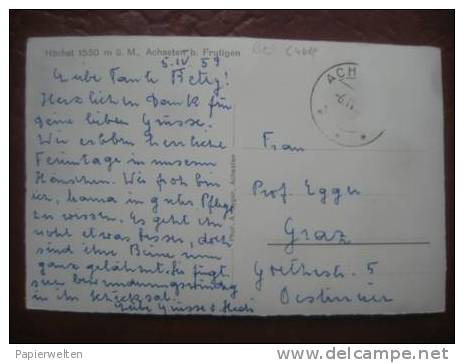 Höchst 1550 m ü. M., Achseten b. Frutigen
5. IV. 59
Liebe Tante Betty!
Herzlichen Dank für
deine lieben Grüsse.
Wir erleben herrliche
Ferientage in unserem
Häuschen. Wie froh bin
ich, Mama in guter Pflege
zu wissen. Es geht ihr
wohl etwas besser, doch
sind ihre Beine nun
ganz gelähmt. Sie fügt
sich bewundernswürdig
in ihr Schicksal.
Liebe Grüsse
ACH
Frau
Prof. Egger
Graz
Goethestr. 5
Oesterreich
© Papierwelten
http://www.delcampe.net